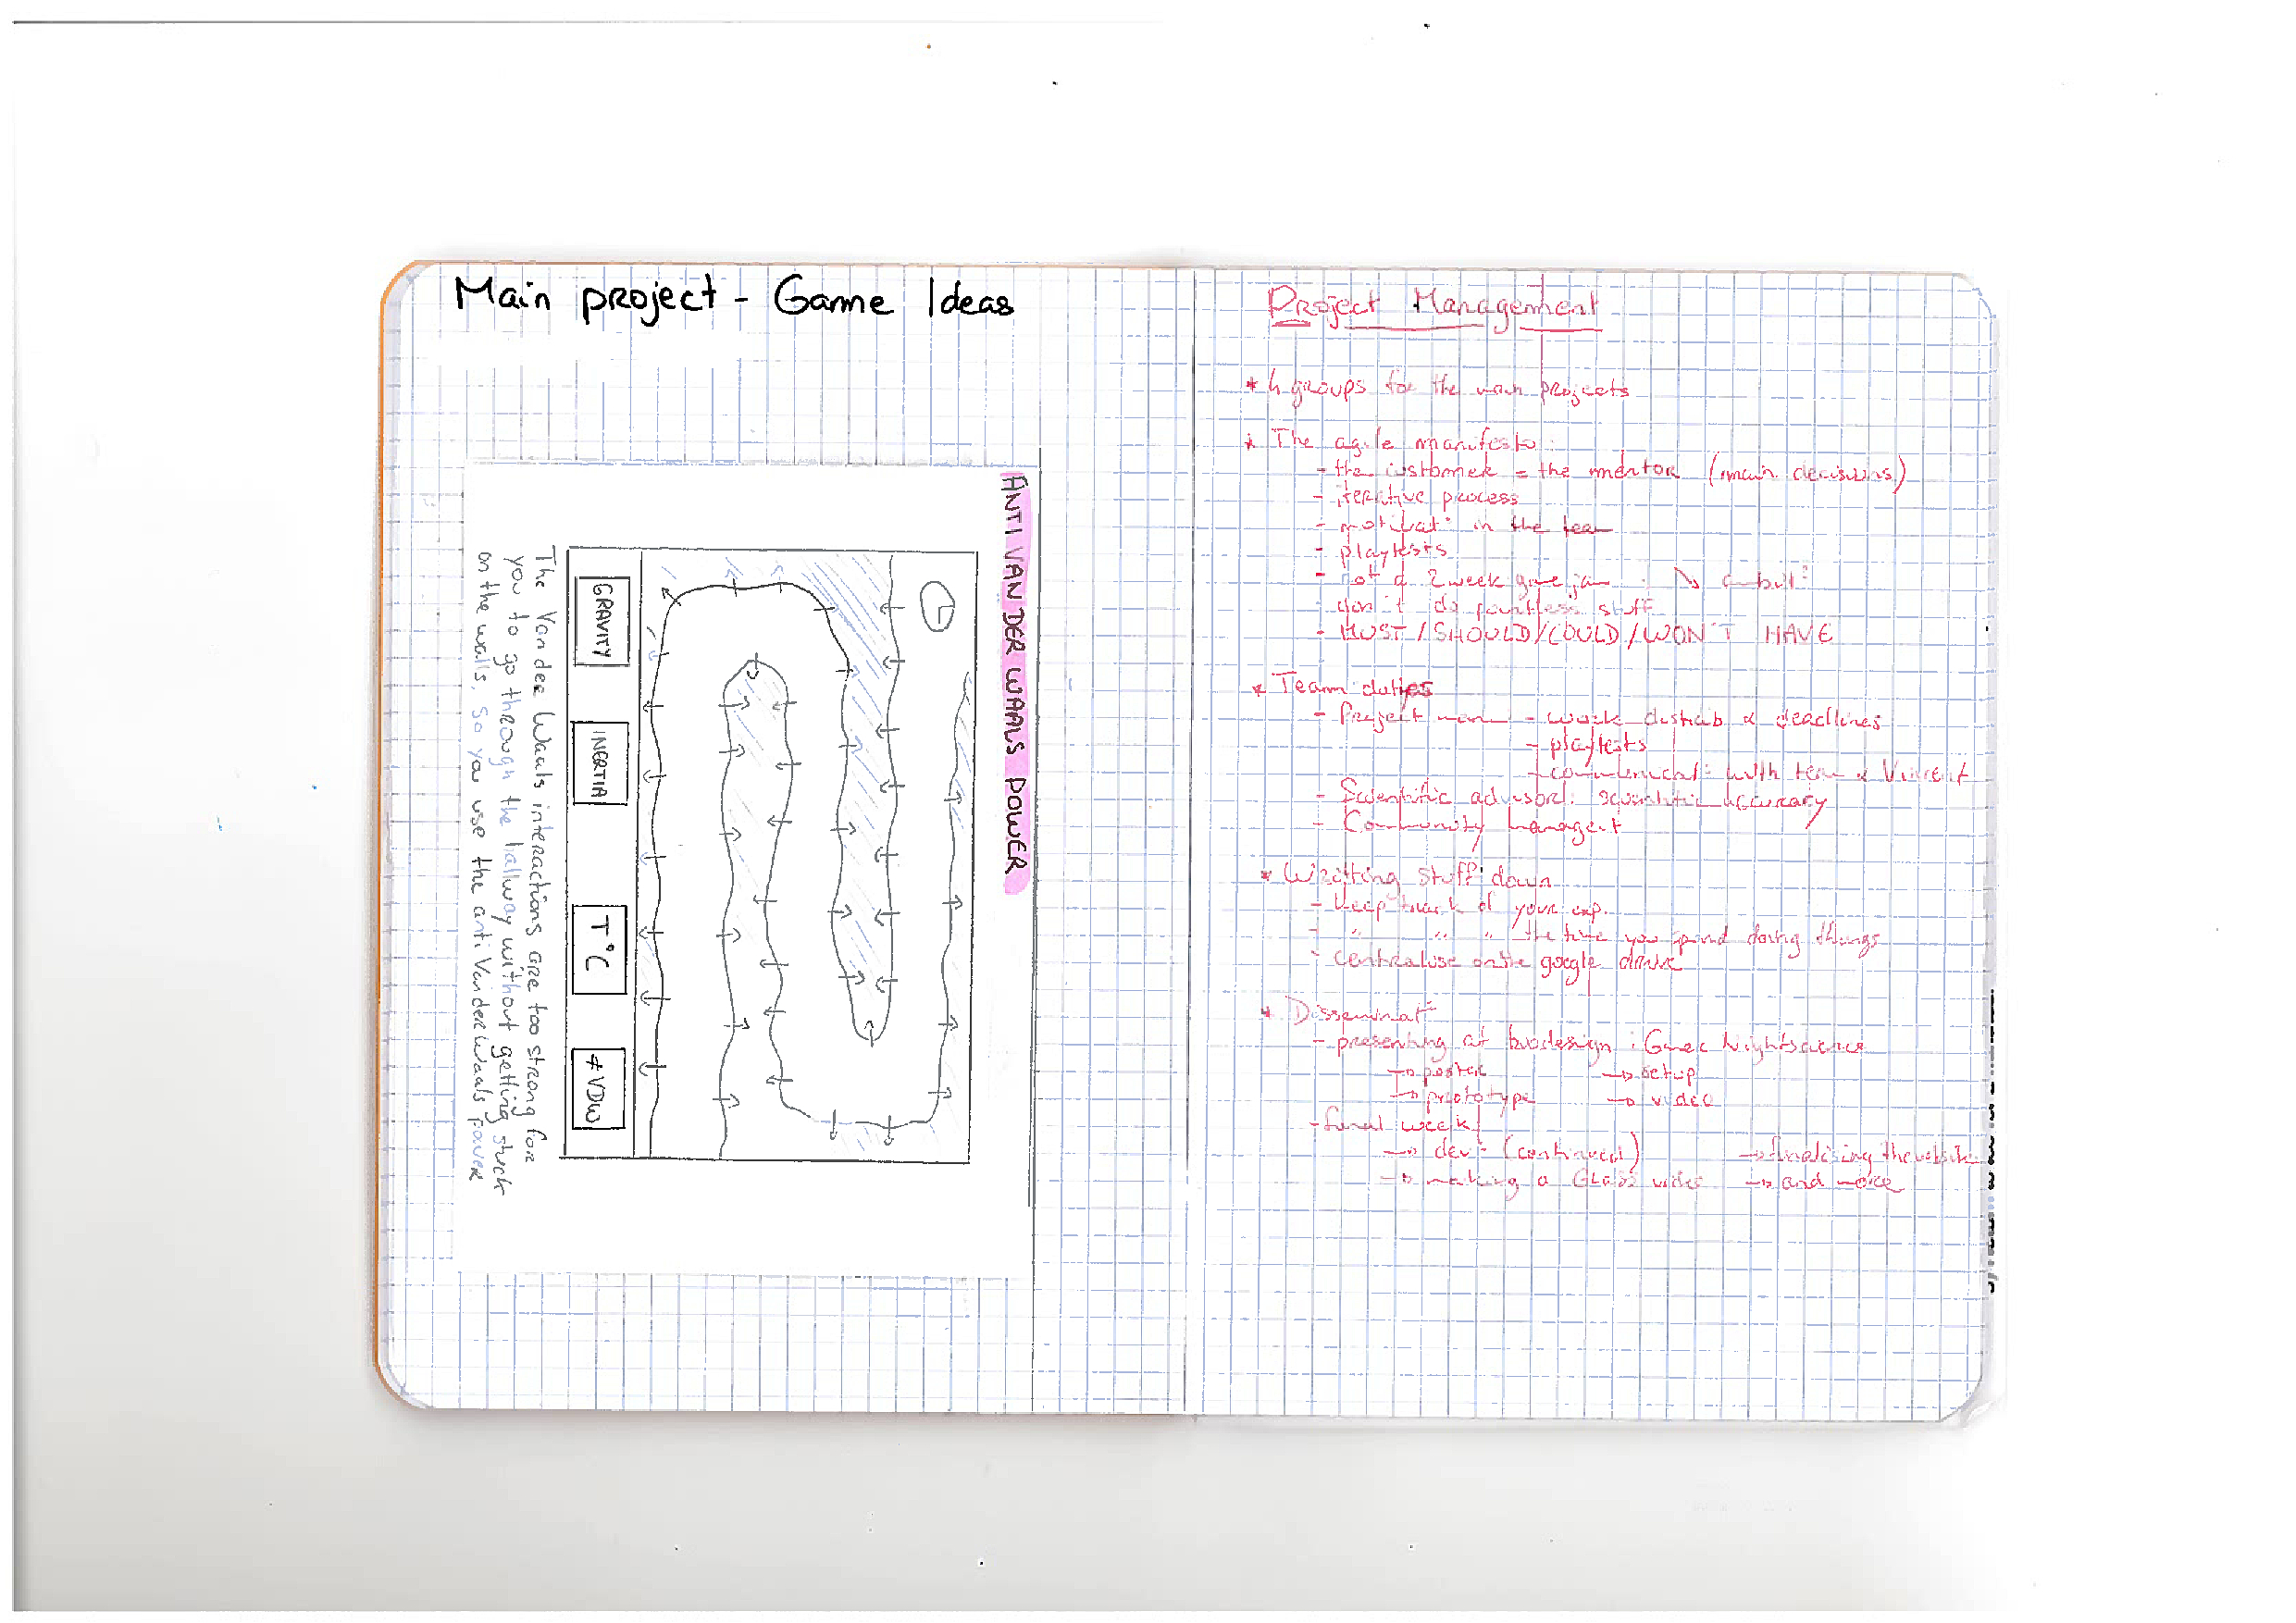 Main project - Game Ideas
ANTI VAN DER WAALS POWER
GRAVITY
INERTIA
T°C
≠ VDW
The Van der Waals interactions are too strong for
you to go through the hallway without getting stuck
on the walls, so you use the anti Van der Waals power
Project Management
* 4 groups for the main projects
* The agile manifesto:
- the customer = the mentor (main decisions)
- iterative process
- motivat° in the team
- playtests
- not a 2 week game jam : ↘ ambit°
- don't do pointless stuff
- MUST / SHOULD / COULD / WON'T HAVE
* Team duties
- Project man - work distrib & deadlines
- playtests
- communicat° with team & Vincent
- Scientific advisor: scientific accuracy
- Community manager
* Writting stuff down
- keep track of your exp.
- " " " the time you spend doing things
- centralise on the google drive
* Disseminat°
- presenting at biodesign : Gamer Nightscience
→ poster → setup
→ prototype → video
- final week
→ dev° (continued) → finalising the website
→ making a Glass video → and more